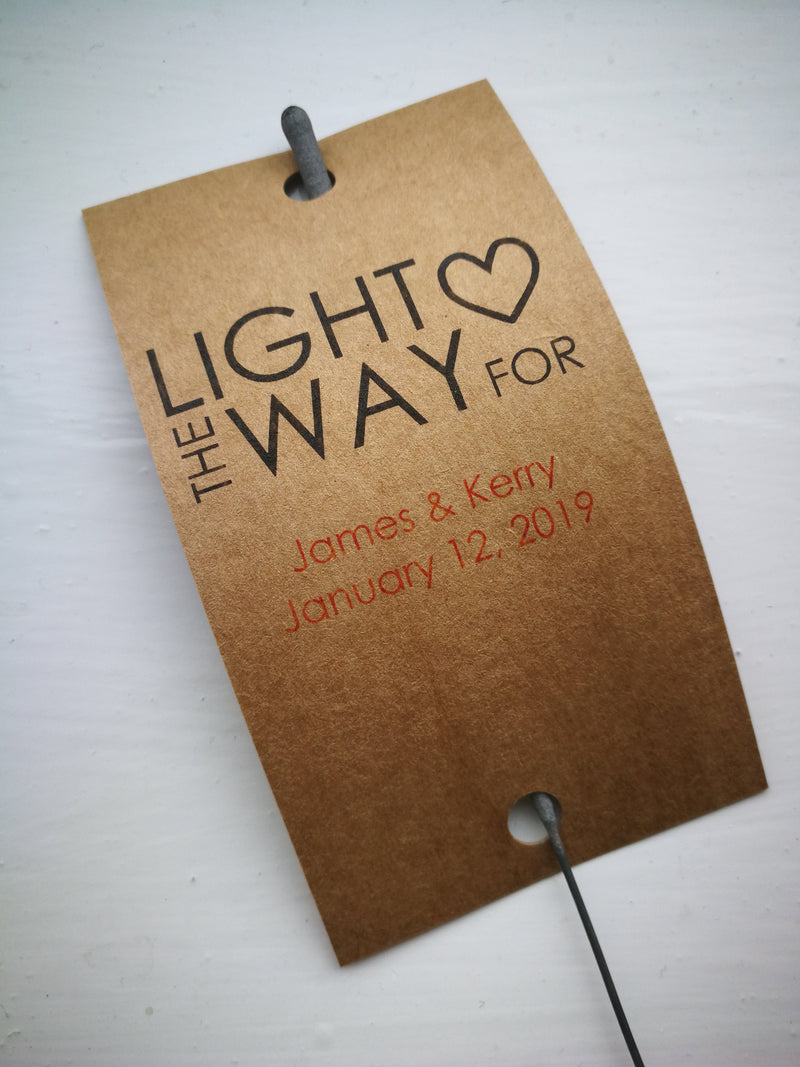 LIGHT
THE WAY FOR
James & Kerry
January 12, 2019